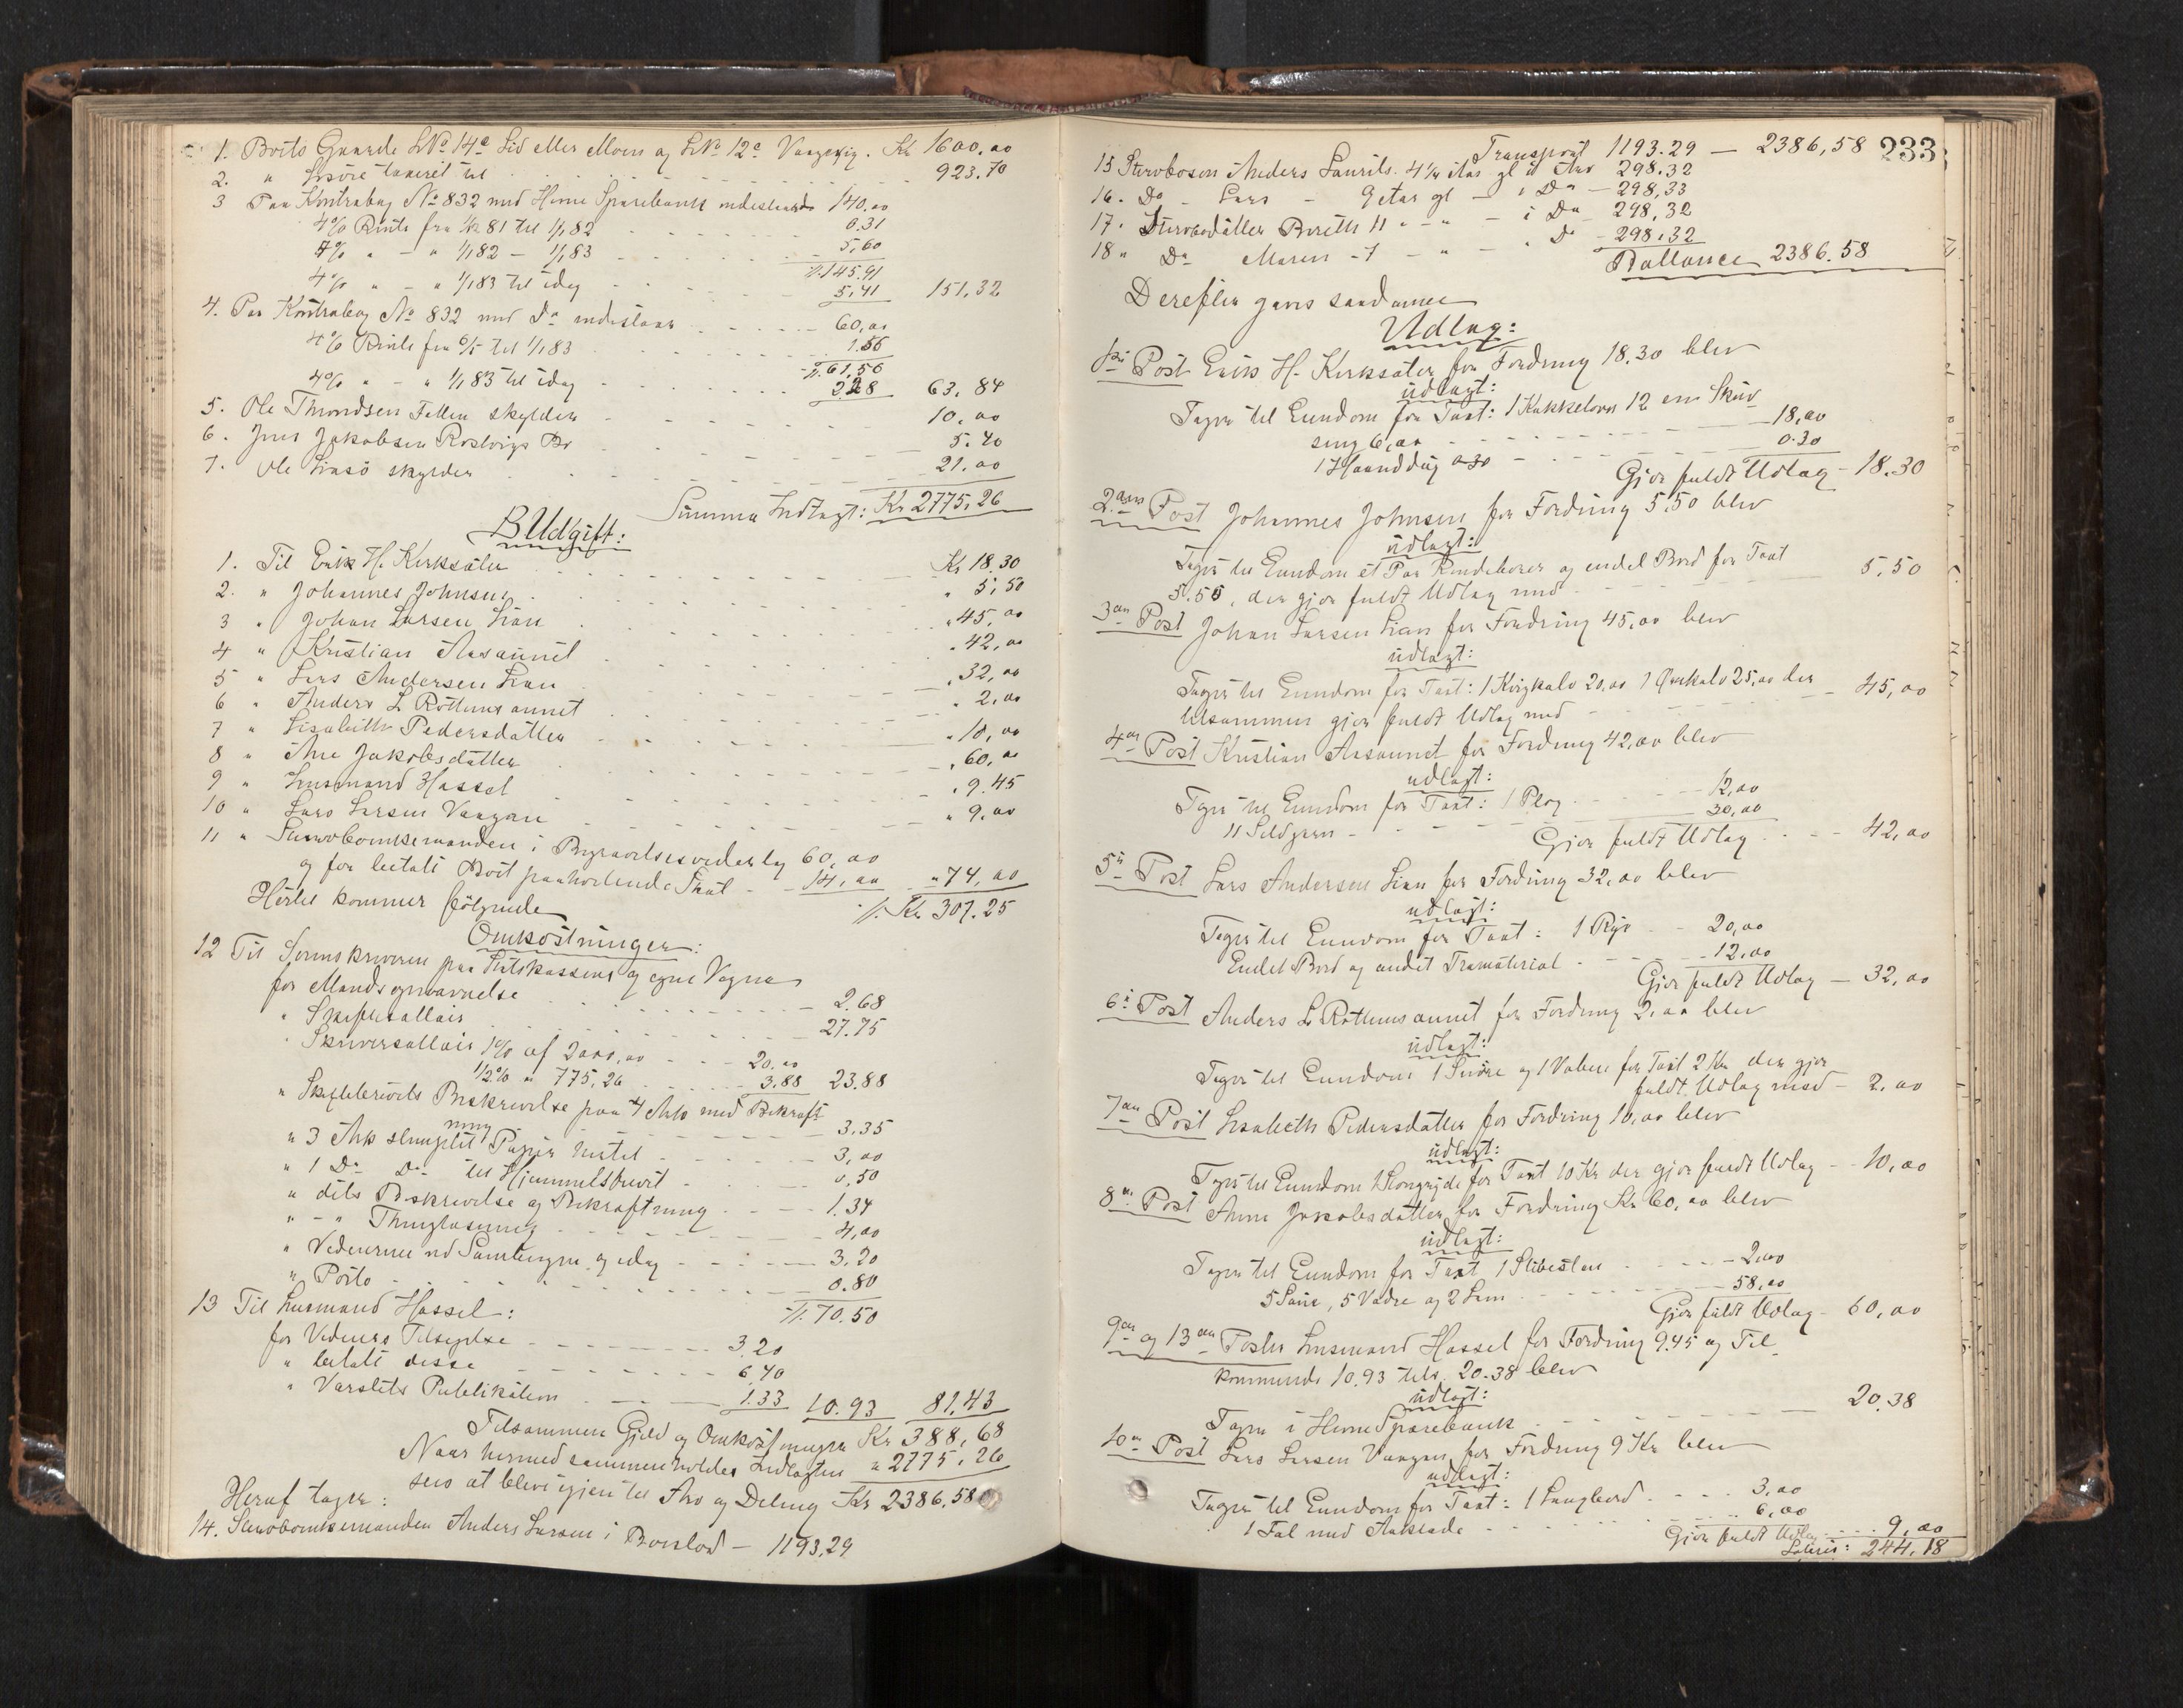 1. Boets Gaarde LNo 14a Lid eller Moen og LNo 12c Vaagevig. Kr 1600,00
2. " Løsøre taxeret til 923.70
3 Paa Kontrabog No 832 med Hevne Sparebank indestaaende 140.00
4% Rente fra 81 til 1/1 82 0.31
4% " - " 1/1 82 - 1/1 83 5,60
145.91
4% " - " 1/1 83 til idag 5,41 151,32
4. Paa Kontrabog No 832 med Do indestaar 60,00
4% Rente fra til 1/1 83 1.56
61,56
4% " - " 1/1 83 til idag 2,28 63,84
5. Ole Throndsen skylder 10,00
6. Jens Jakobsen Do 5.40
7. Ole skylder 21.00
Summa Indtægt: Kr 2775,26
B Udgift:
1. Til Erik H. Kirksæter Kr 18.30
2. " Johannes Johnsen " 5,50
3 " Johan Larsen Lian " 45,00
4 " Kristian Aasaunet " 42,00
5 " Lars Andersen Lian " 32,00
6 " Anders L Røthumsaunet " 2,00
7 " Lisabeth Pedersdatter " 10,00
8 " Ane Jakobsdatter " 60,00
9 " Lensmand Hassel " 9.45
10 " Lars Larsen Vaagan " 9,00
11 " Stervboenkemanden i Begravelsesvederlag 60,00
og for betalt Boet paahvilende Skat - 14,00 " 74,00
Hertil kommer følgende Kr. 307.25
Omkostninger:
12 Til Sorenskriveren paa Statskassens og egne Vegne
for Mandsopnævnelse 2.68
" Skiftesallair 27.75
" Skriversallair 1% af 2000,00 20.00
1/2% " 775,26 3.88 23.88
" Skiftebrevets Beskrivelse paa 4 Ark med Bekræft
ning 3.35
" 3 Ark stemplet Papir hertil 3,00
" 1 Do Do til Hjemmelsbrevet 0,50
" dets Beskrivelse og Bekræftning 1.34
" - " Thinglæsning 4,00
" Vidnerne ved Samlingen og idag 3.20
" Porto 0.80
70.50
13 Til Lensmand Hassel:
for Vidners Tilsigelse 3.20
" betalt disse 6,40
" Varslets Publikation 1.33 10.93 81,43
Tilsammen Gjæld og Omkostninger Kr 388,68
Naar hermed sammenholdes Indtægten " 2775,26
sees at blive igjen til Arv og Deling Kr 2386,58
Heraf tager:
14. Stervboenkemanden Anders Larsen i Boeslod - 1193,29
233
Transport 1193.29 - 2386,58
15 Stervbosøn Anders Laurits 4 1/2 Aar gl i Arv 298.32
16. Do - Lars - 9 Aar gl - i Do - 298,33
17. Stervbodatter Bereth 11 " - " - i Do 298,32
18 " Do Maren - 7 - " - " Do - 298.32
Ballance 2386.58
Derefter gaves saadanne
Udlæg:
1ste Post Erik H. Kirksæter for Fordring 18.30 blev
udlagt:
Tager til Eiendom for Taxt: 1 Kakkelovn 12 en Skuv
seng 6,00 18,00
1 Haanddug 0.30 0.30
Gjør fuldt Udlæg - 18.30
2den Post Johannes Johnsen for Fordring 5,50 blev
udlagt:
Tager til Eiendom et Par Kandeborer og endel Bord for Taxt
5.50, der gjør fuldt Udlæg med 5,50
3die Post Johan Larsen Lian for Fordring 45,00 blev
udlagt:
Tager til Eiendom for Taxt: 1 Kvigkalv 20,00 1 Oxekalv 25,00 der
tilsammen gjør fuldt Udlæg med 45,00
4de Post Kristian Aasaunet for Fordring 42,00 blev
udlagt:
Tager til Eiendom for Taxt: 1 Plog 12,00
11 Sildgarn 30,00
Gjør fuldt Udlæg 42,00
5te Post Lars Andersen Lian for Fordring 32,00 blev
udlagt:
Tager til Eiendom for Taxt: 1 Rye 20,00
Endel Bord og andet Træmaterial 12,00
Gjør fuldt Udlæg - 32,00
6te Post Anders L Røthumsaunet for Fordring 2,00 blev
udlagt:
Tager til Eiendom 1 Snøre og 1 Vabeie for Taxt 2 Kr der gjør
fuldt Udlæg med - 2,00
7de Post Lisabeth Pedersdatter for Fordring 10,00 blev
udlagt:
Tager til Eiendom 1 for Taxt 10 Kr der gjør fuldt Udlæg - 10,00
8de Post Anne Jakobsdatter for Fordring Kr 60,00 blev
udlagt:
Tager til Eiendom for Taxt 1 Slibesten 2,00
5 Sauer, 5 Vædre og 2 Lam 58,00
Gjør fuldt Udlæg - 60,00
9de og 13de Poster Lensmand Hassel for Fordring 9.45 og Til
kommende 10.93 tils. 20.38 blev
udlagt:
Tager i Hevne Sparebank 20.38
10de Post Lars Larsen Vaagan for Fordring 9 Kr blev
udlagt:
Tager til Eiendom for Taxt: 1 Langbord 3,00
1 Fal med 6,00
Gjør fuldt Udlæg 9,00
Lateris: 244,18